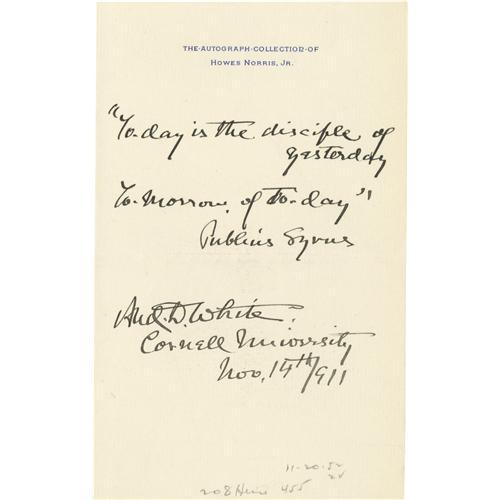 THE·AUTOGRAPH·COLLECTION·OF
HOWES NORRIS, JR.
"To-day is the disciple of
Yesterday
To-Morrow, of To-day"
Publius Syrus
And. D. White.
Cornell University
Nov. 14th/911
11-20-52
208 455